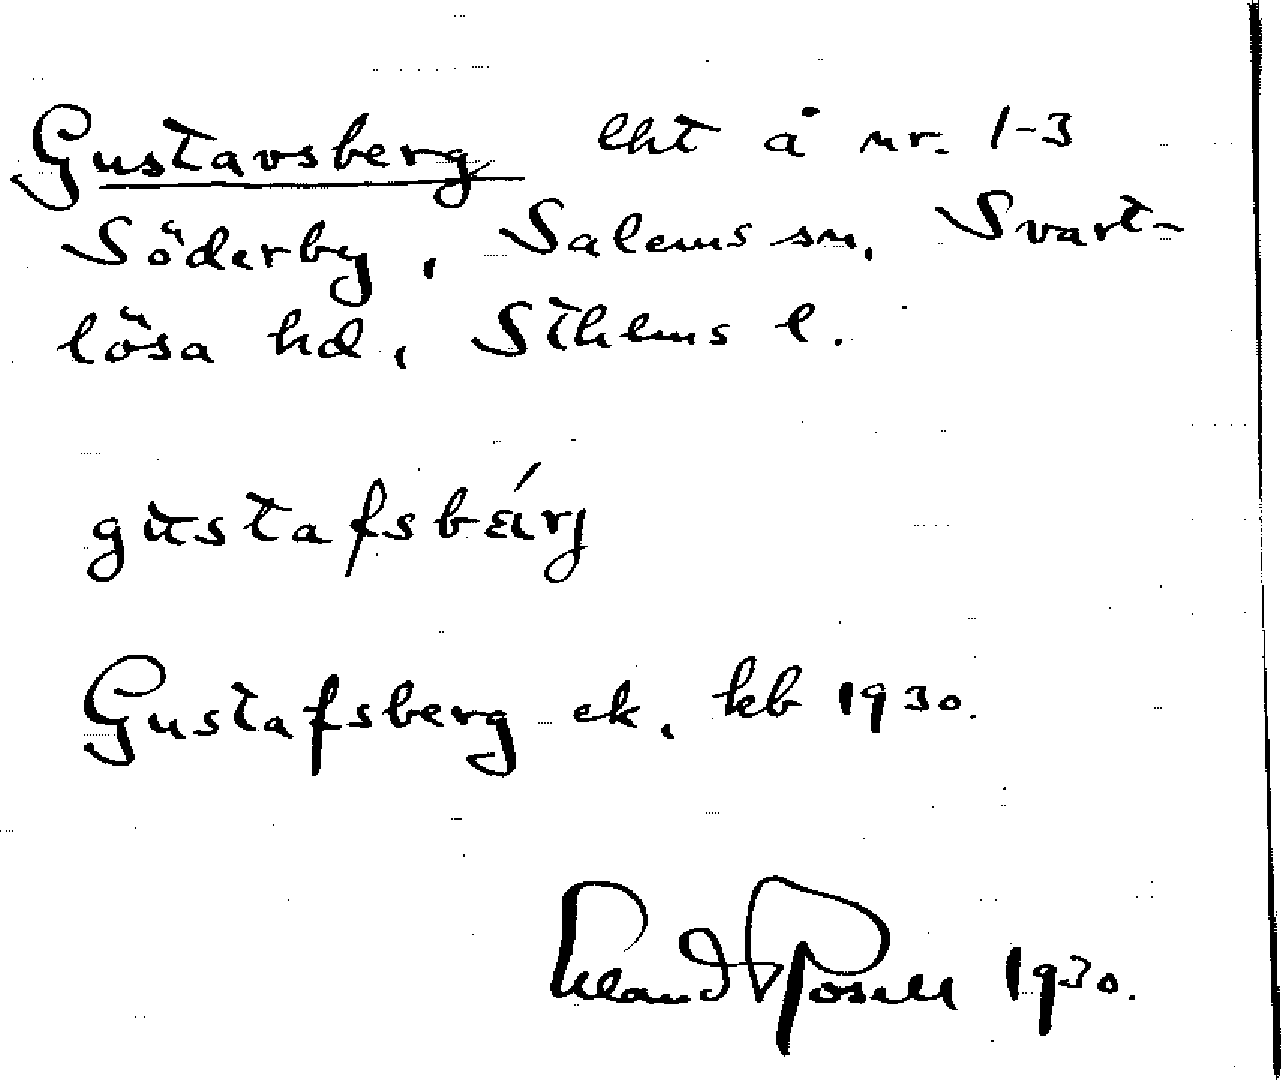 Gustavsberg lht å nr. 1-3
Söderby, Salems sn, Svart-
lösa hd, Sthlms l.
gustafsbärj
Gustafsberg ek. kb 1930.
Erland Rosell 1930.